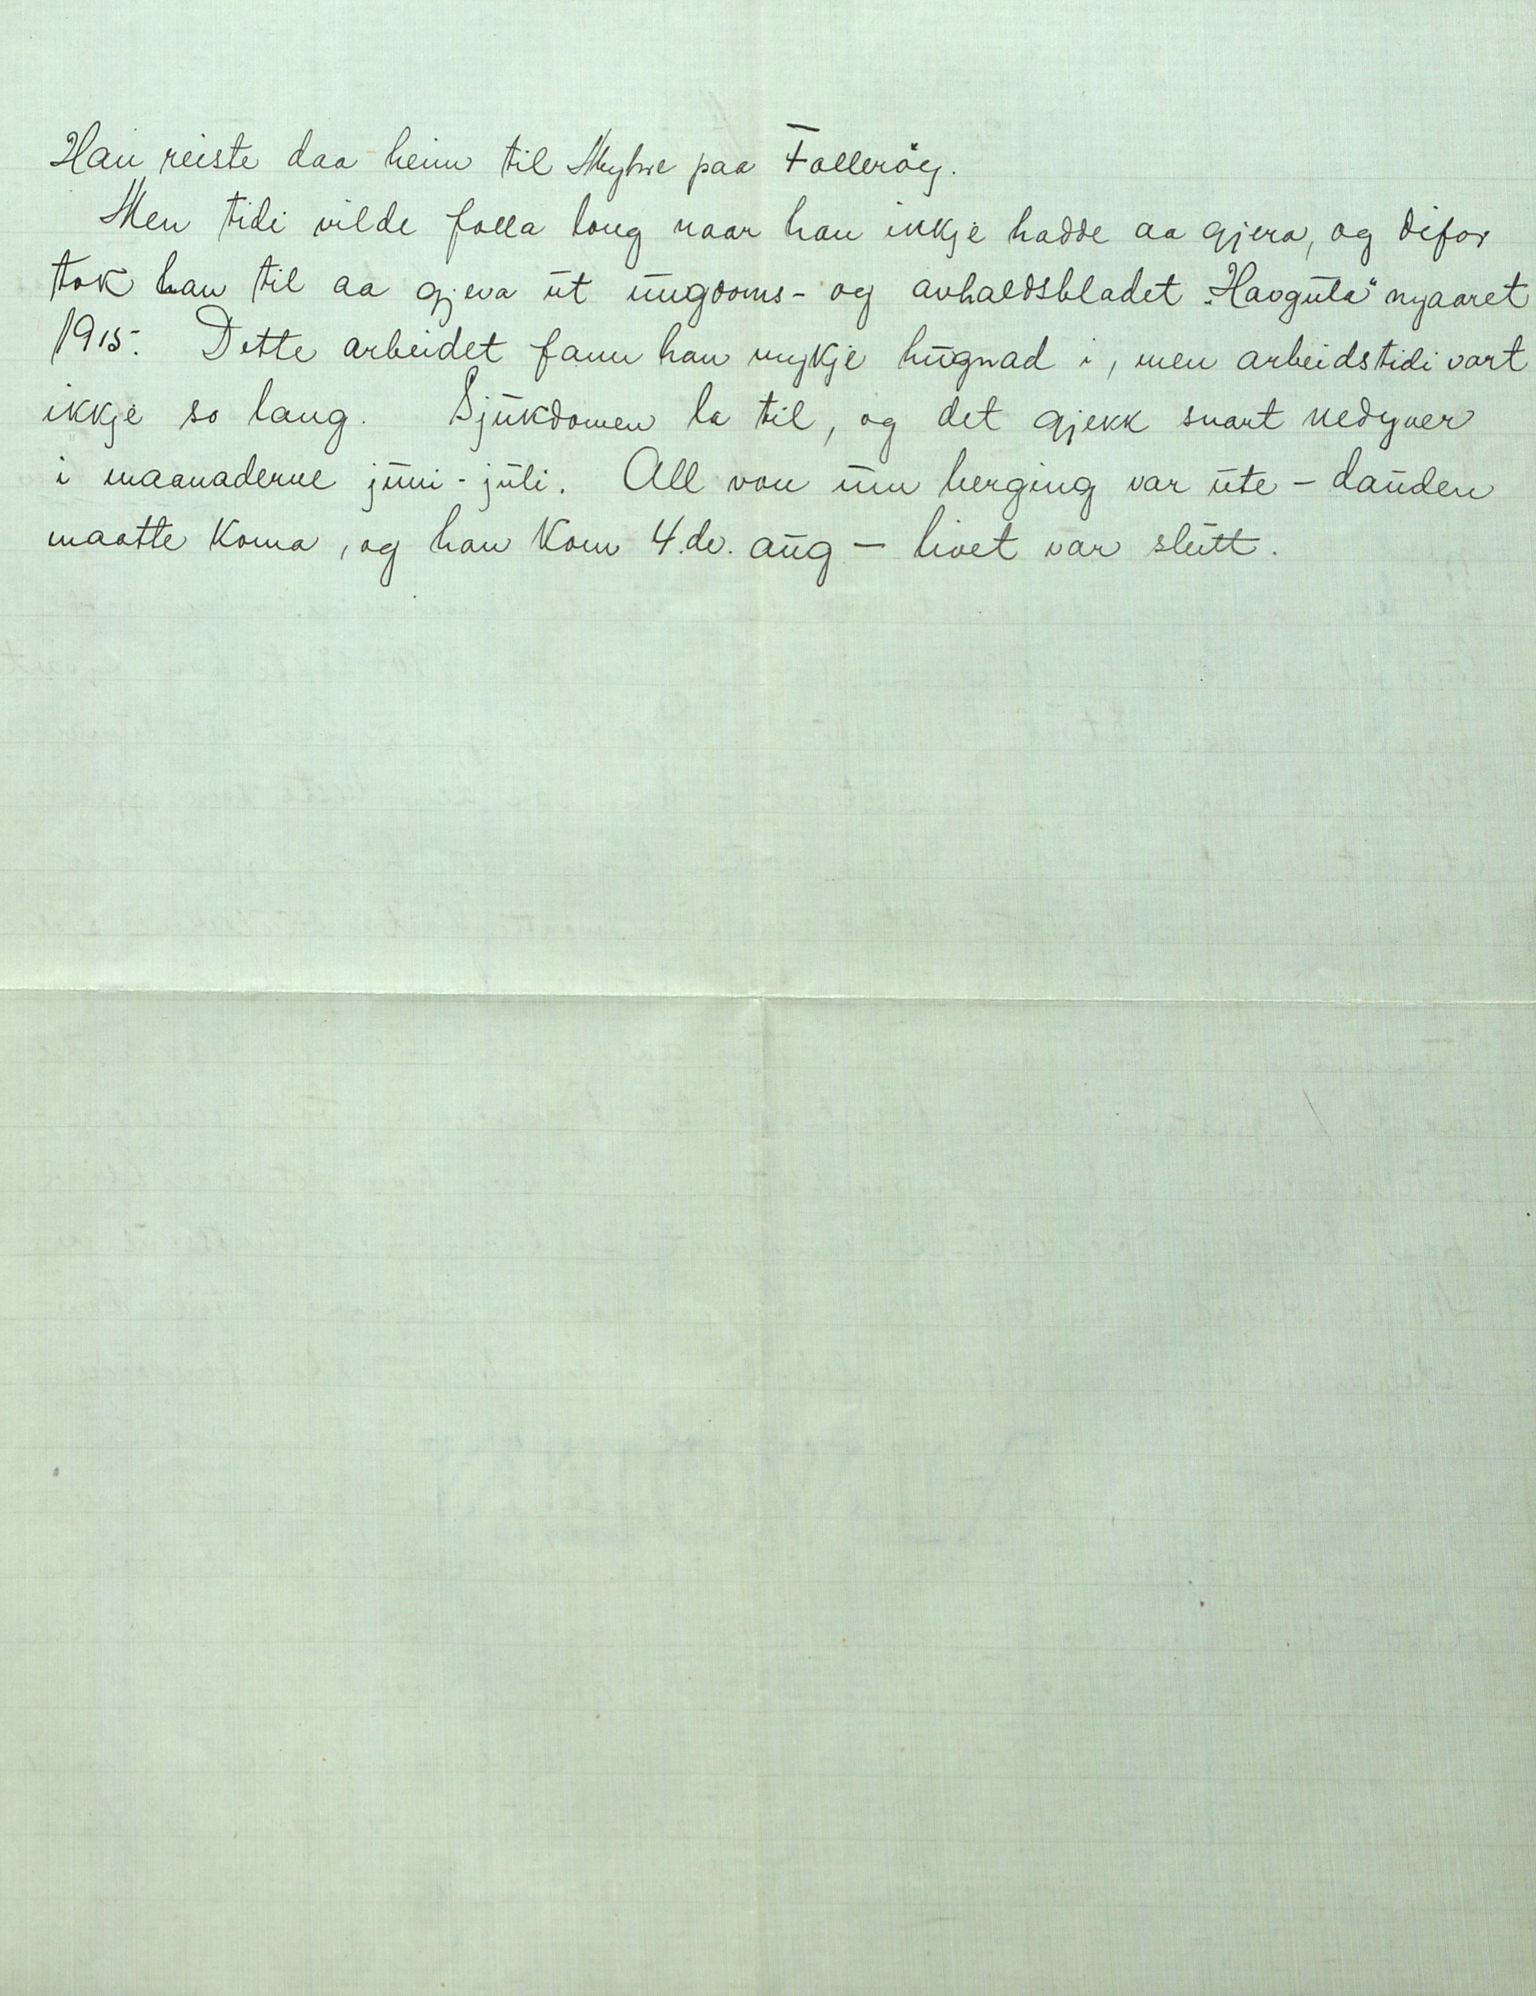 Han reiste daa heim til Myhre paa Folleröy.
Men tidi vilde falla long naar han ikkje hadde aa gjera, og difor
tok han til aa gjeva ut ungdoms- og avhaldsbladet „Havgula“ nyaaret
1915. Dette arbeidet fann han mykje hugnad i, men arbeidstidi vart
ikkje so lang. Sjukdomen la til, og det gjekk snart nedyver
i maanaderne juni - juli. All von um berging var ute – dauden
maatte koma, og han kom 4.de. aug – livet var slutt.